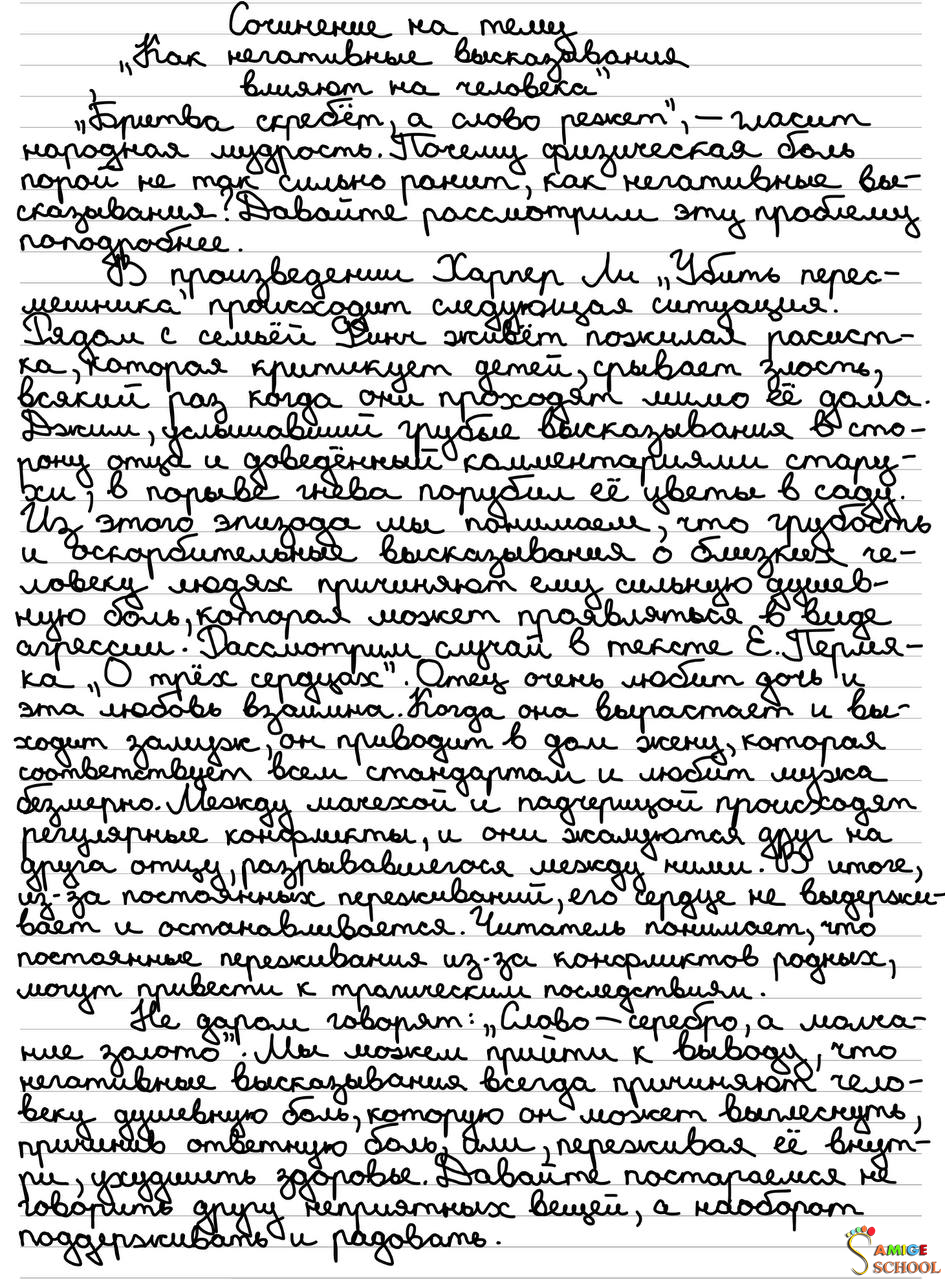 Сочинение на тему
„Как негативные высказывания
влияют на человека"
„Бритва скребёт, а слово режет", – гласит
народная мудрость. Почему физическая боль
порой не так сильно ранит, как негативные вы-
сказывания? Давайте рассмотрим эту проблему
поподробнее.
В произведении Харпер Ли „Убить перес-
мешника" происходит следующая ситуация.
Рядом с семьёй Финч живёт пожилая расист-
ка, которая критикует детей, срывает злость,
всякий раз когда они проходят мимо её дома.
Джим, услышавший грубые высказывания в сто-
рону отца и доведённый комментариями стару-
хи, в порыве гнева порубил её цветы в саду.
Из этого эпизода мы понимаем, что грубость
и оскорбительные высказывания о близких че-
ловеку людях причиняют ему сильную душев-
ную боль, которая может проявляться в виде
агрессии. Рассмотрим случай в тексте Е. Пермя-
ка „О трёх сердцах". Отец очень любит дочь и
эта любовь взаимна. Когда она вырастает и вы-
ходит замуж, он приводит в дом жену, которая
соответствует всем стандартам и любит мужа
безмерно. Между мачехой и падчерицой происходят
регулярные конфликты, и они жалуются друг на
друга отцу, разрывавшегося между ними. В итоге,
из-за постоянных переживаний, его сердце не выдержи-
вает и останавливается. Читатель понимает, что
постоянные переживания из-за конфликтов родных,
могут привести к трагическим последствиям.
Не даром говорят: „Слово – серебро, а молча-
ние золото". Мы можем прийти к выводу, что
негативные высказывания всегда причиняют чело-
веку душевную боль, которую он может выплеснуть,
причинив ответную боль, или, переживая её внут-
ри, ухудшить здоровье. Давайте постараемся не
говорить другу неприятных вещей, а наоборот
поддерживать и радовать.
SAMIGE
SCHOOL